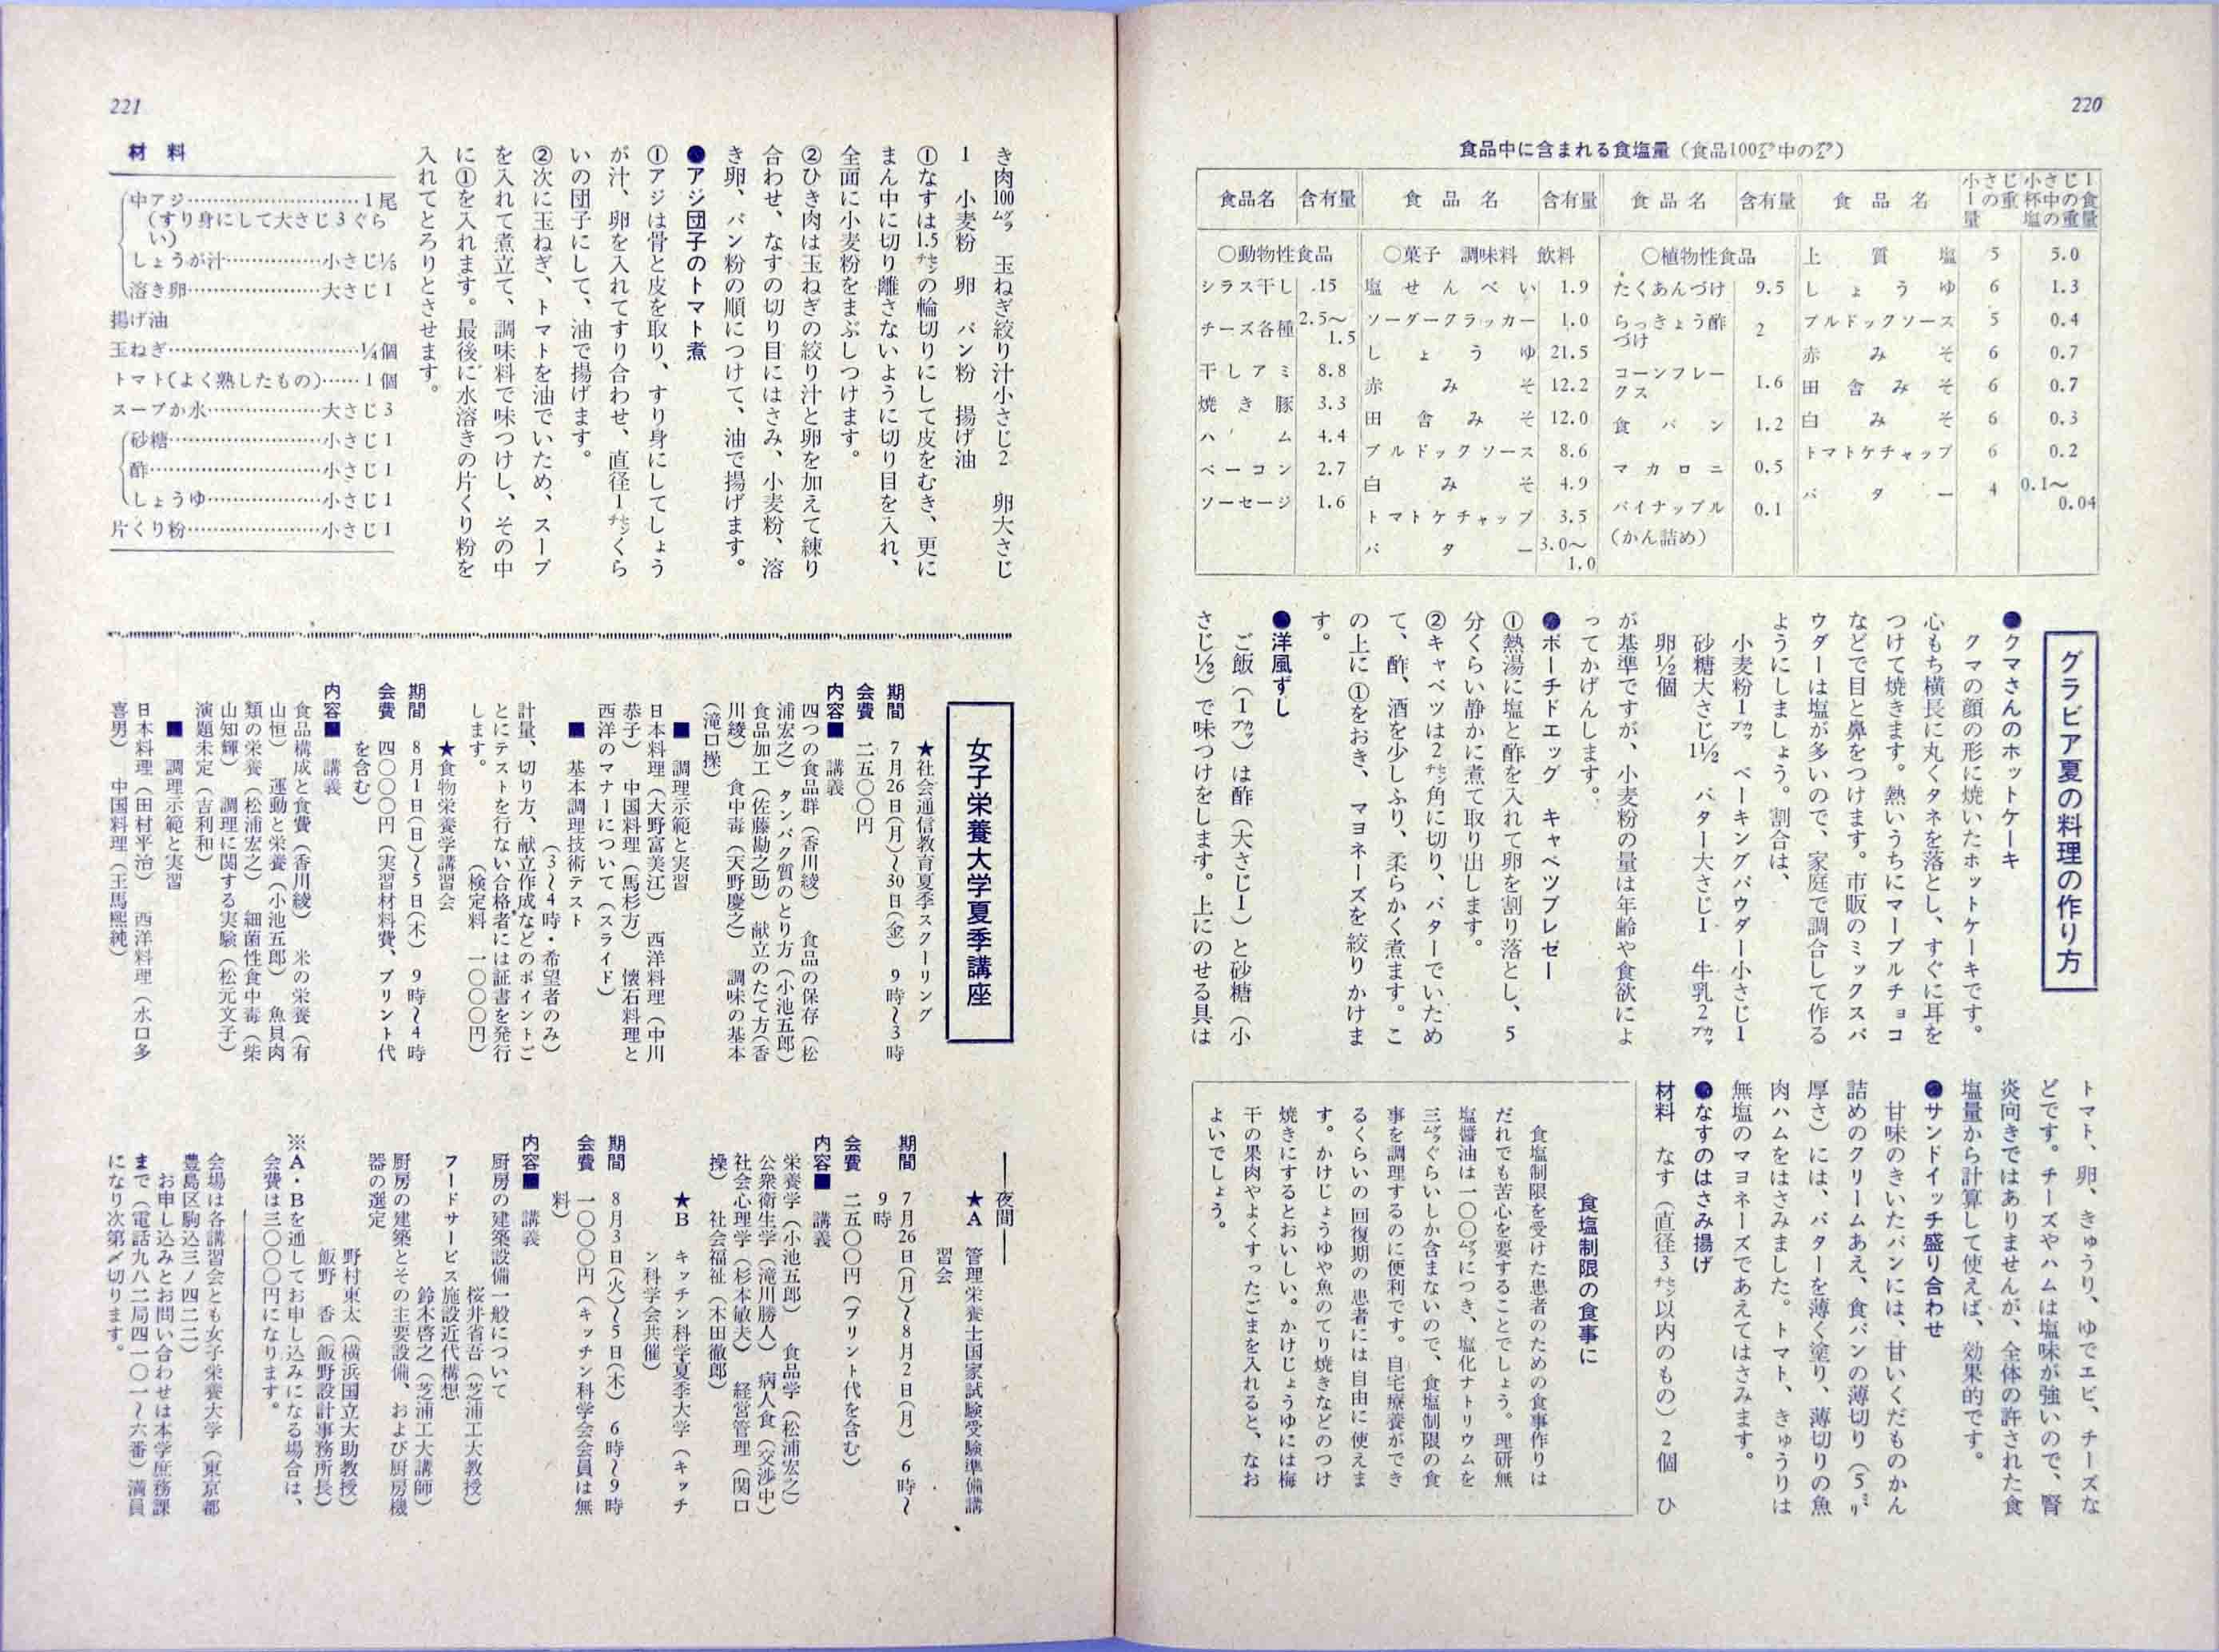 220
食品中に含まれる食塩量（食品100㌘中の㌘）
食品名 含有量 食品名 含有量 食品名 含有量 食品名 小さじ1の重量 小さじ1杯中の食塩の重量
○動物性食品 ○菓子 調味料 飲料 ○植物性食品 上質塩 5 5.0
シラス干し .15 塩せんべい 1.9 たくあんづけ 9.5 しょうゆ 6 1.3
チーズ各種 2.5〜1.5 ソーダークラッカー 1.0 らっきょう酢づけ 2 ブルドックソース 5 0.4
干しアミ 8.8 しょうゆ 21.5 コーンフレークス 1.6 赤みそ 6 0.7
焼き豚 3.3 赤みそ 12.2 食パン 1.2 田舎みそ 6 0.7
ハム 4.4 田舎みそ 12.0 マカロニ 0.5 白みそ 6 0.3
ベーコン 2.7 ブルドックソース 8.6 パイナップル（かん詰め） 0.1 トマトケチャップ 6 0.2
ソーセージ 1.6 白みそ 4.9 バター 4 0.1〜0.04
トマトケチャップ 3.5
バター 3.0〜1.0
グラビア夏の料理の作り方
●クマさんのホットケーキ
クマの顔の形に焼いたホットケーキです。
心もち横長に丸くタネを落とし、すぐに耳を
つけて焼きます。熱いうちにマーブルチョコ
などで目と鼻をつけます。市販のミックスパ
ウダーは塩が多いので、家庭で調合して作る
ようにしましょう。割合は、
小麦粉1㌍ ベーキングパウダー小さじ1
砂糖大さじ1½ バター大さじ1 牛乳2㌍
卵½個
が基準ですが、小麦粉の量は年齢や食欲によ
ってかげんします。
●ポーチドエッグ キャベツブレゼー
①熱湯に塩と酢を入れて卵を割り落とし、5
分くらい静かに煮て取り出します。
②キャベツは2㌢角に切り、バターでいため
て、酢、酒を少しふり、柔らかく煮ます。こ
の上に①をおき、マヨネーズを絞りかけま
す。
●洋風ずし
ご飯（1㌍）は酢（大さじ1）と砂糖（小
さじ½）で味つけをします。上にのせる具は
トマト、卵、きゅうり、ゆでエビ、チーズな
どです。チーズやハムは塩味が強いので、腎
炎向きではありませんが、全体の許された食
塩量から計算して使えば、効果的です。
●サンドイッチ盛り合わせ
甘味のきいたパンには、甘いくだものかん
詰めのクリームあえ、食パンの薄切り（5㍉
厚さ）には、バターを薄く塗り、薄切りの魚
肉ハムをはさみました。トマト、きゅうりは
無塩のマヨネーズであえてはさみます。
●なすのはさみ揚げ
材料 なす（直径3㌢以内のもの）2個 ひ
食塩制限の食事に
食塩制限を受けた患者のための食事作りは
だれでも苦心を要することでしょう。理研無
塩醤油は一〇〇㌘につき、塩化ナトリウムを
三㌘ぐらいしか含まないので、食塩制限の食
事を調理するのに便利です。自宅療養ができ
るくらいの回復期の患者には自由に使えま
す。かけじょうゆや魚のてり焼きなどのつけ
焼きにするとおいしい。かけじょうゆには梅
干の果肉やよくすったごまを入れると、なお
よいでしょう。
221
き肉100㌘ 玉ねぎ絞り汁小さじ2 卵大さじ
1 小麦粉 卵 パン粉 揚げ油
①なすは1.5㌢の輪切りにして皮をむき、更に
まん中に切り離さないように切り目を入れ、
全面に小麦粉をまぶしつけます。
②ひき肉は玉ねぎの絞り汁と卵を加えて練り
合わせ、なすの切り目にはさみ、小麦粉、溶
き卵、パン粉の順につけて、油で揚げます。
●アジ団子のトマト煮
①アジは骨と皮を取り、すり身にしてしょう
が汁、卵を入れてすり合わせ、直径1㌢くら
いの団子にして、油で揚げます。
②次に玉ねぎ、トマトを油でいため、スープ
を入れて煮立て、調味料で味つけし、その中
に①を入れます。最後に水溶きの片くり粉を
入れてとろりとさせます。
材料
中アジ……1尾
（すり身にして大さじ3ぐら
い）
しょうが汁……小さじ⅕
溶き卵……大さじ1
揚げ油
玉ねぎ……¼個
トマト（よく熟したもの）……1個
スープか水……大さじ3
砂糖……小さじ1
酢……小さじ1
しょうゆ……小さじ1
片くり粉……小さじ1
女子栄養大学夏季講座
★社会通信教育夏季スクーリング
期間 7月26日（月）〜30日（金） 9時〜3時
会費 二五〇〇円
内容■ 講義
四つの食品群（香川綾） 食品の保存（松
浦宏之） タンパク質のとり方（小池五郎）
食品加工（佐藤勘之助） 献立のたて方（香
川綾） 食中毒（天野慶之） 調味の基本
（滝口操）
■ 調理示範と実習
日本料理（大野富美江） 西洋料理（中川
恭子） 中国料理（馬杉方） 懐石料理と
西洋のマナーについて（スライド）
■ 基本調理技術テスト
（3〜4時・希望者のみ）
計量、切り方、献立作成などのポイントご
とにテストを行ない合格者には証書を発行
します。 （検定料 一〇〇〇円）
★食物栄養学講習会
期間 8月1日（日）〜5日（木） 9時〜4時
会費 四〇〇〇円（実習材料費、プリント代
を含む）
内容■ 講義
食品構成と食費（香川綾） 米の栄養（有
山恒） 運動と栄養（小池五郎） 魚貝肉
類の栄養（松浦宏之） 細菌性食中毒（柴
山知輝） 調理に関する実験（松元文子）
演題未定（吉利和）
■ 調理示範と実習
日本料理（田村平治） 西洋料理（水口多
喜男） 中国料理（王馬熙純）
──夜間──
★A 管理栄養士国家試験受験準備講
習会
期間 7月26日（月）〜8月2日（月） 6時〜
9時
会費 二五〇〇円（プリント代を含む）
内容■ 講義
栄養学（小池五郎） 食品学（松浦宏之）
公衆衛生学（滝川勝人） 病人食（交渉中）
社会心理学（杉本敏夫） 経営管理（関口
操） 社会福祉（木田徹郎）
★B キッチン科学夏季大学（キッチ
ン科学会共催）
期間 8月3日（火）〜5日（木） 6時〜9時
会費 一〇〇〇円（キッチン科学会会員は無
料）
内容■ 講義
厨房の建築設備一般について
桜井省吾（芝浦工大教授）
フードサービス施設近代構想
鈴木啓之（芝浦工大講師）
厨房の建築とその主要設備、および厨房機
器の選定
野村東太（横浜国立大助教授）
飯野 香（飯野設計事務所長）
※A・Bを通してお申し込みになる場合は、
会費は三〇〇〇円になります。
会場は各講習会とも女子栄養大学（東京都
豊島区駒込三ノ四二二）
お申し込みとお問い合わせは本学庶務課
まで（電話九八二局四一〇一〜六番）満員
になり次第〆切ります。